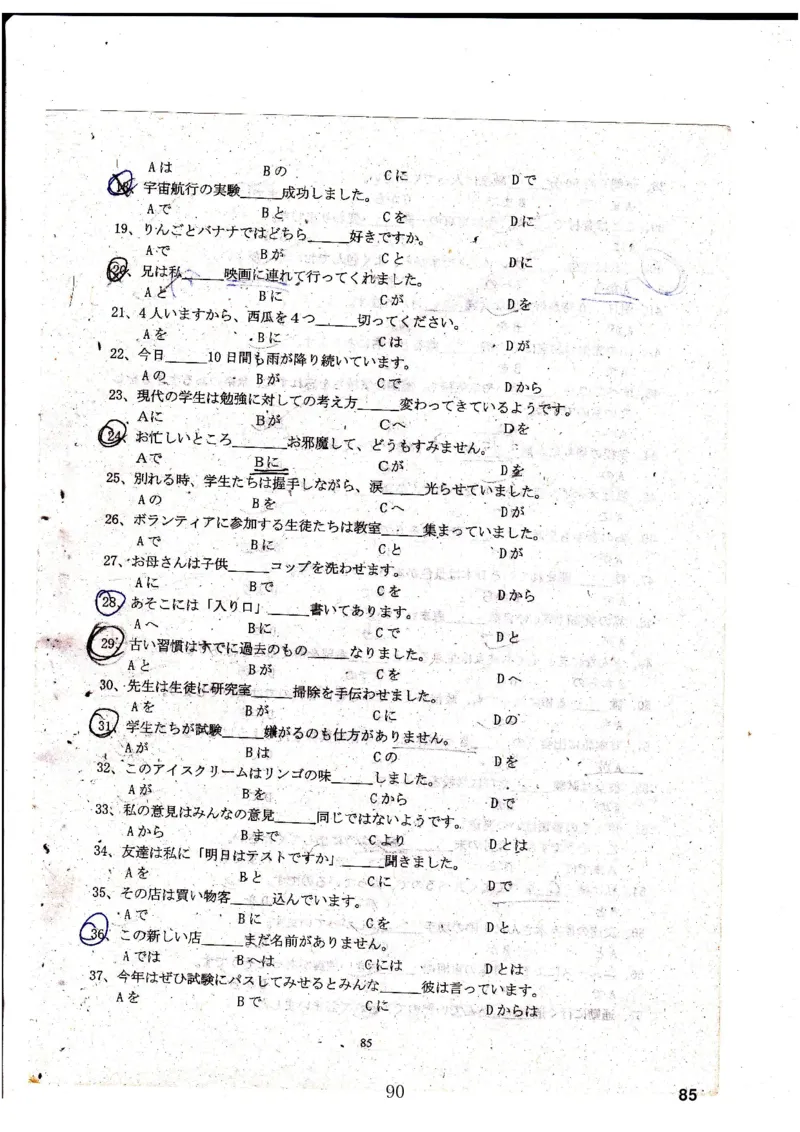 Aは Bの Cに Dで
18、宇宙航行の実験_____成功しました。
Aで Bと Cを Dに
19、りんごとバナナではどちら_____好きですか。
Aで Bが Cと Dに
20、兄は私_____映画に連れて行ってくれました。
Aと Bに Cが Dを
21、4人いますから、西瓜を4つ_____切ってください。
Aを Bに Cは Dが
22、今日_____10日間も雨が降り続いています。
Aの Bが Cで Dから
23、現代の学生は勉強に対しての考え方_____変わってきているようです。
Aに Bが Cへ Dを
24、お忙しいところ_____お邪魔して、どうもすみません。
Aで Bに Cが Dを
25、別れる時、学生たちは握手しながら、涙_____光らせていました。
Aの Bを Cへ Dが
26、ボランティアに参加する生徒たちは教室_____集まっていました。
Aで Bに Cと Dが
27、お母さんは子供_____コップを洗わせます。
Aに Bで Cを Dから
28、あそこには「入り口」_____書いてあります。
Aへ Bに Cで Dと
29、古い習慣はすでに過去のもの_____なりました。
Aと Bが Cを Dへ
30、先生は生徒に研究室_____掃除を手伝わせました。
Aを Bが Cに Dの
31、学生たちが試験_____嫌がるのも仕方がありません。
Aが Bは Cの Dを
32、このアイスクリームはリンゴの味_____しました。
Aが Bを Cから Dで
33、私の意見はみんなの意見_____同じではないようです。
Aから Bまで Cより Dとは
34、友達は私に「明日はテストですか」_____聞きました。
Aを Bと Cに Dで
35、その店は買い物客_____込んでいます。
Aで Bに Cを Dと
36、この新しい店_____まだ名前がありません。
Aでは Bへは Cには Dとは
37、今年はぜひ試験にパスしてみせるとみんな_____彼は言っています。
Aを Bで Cに Dからは
85
90
85